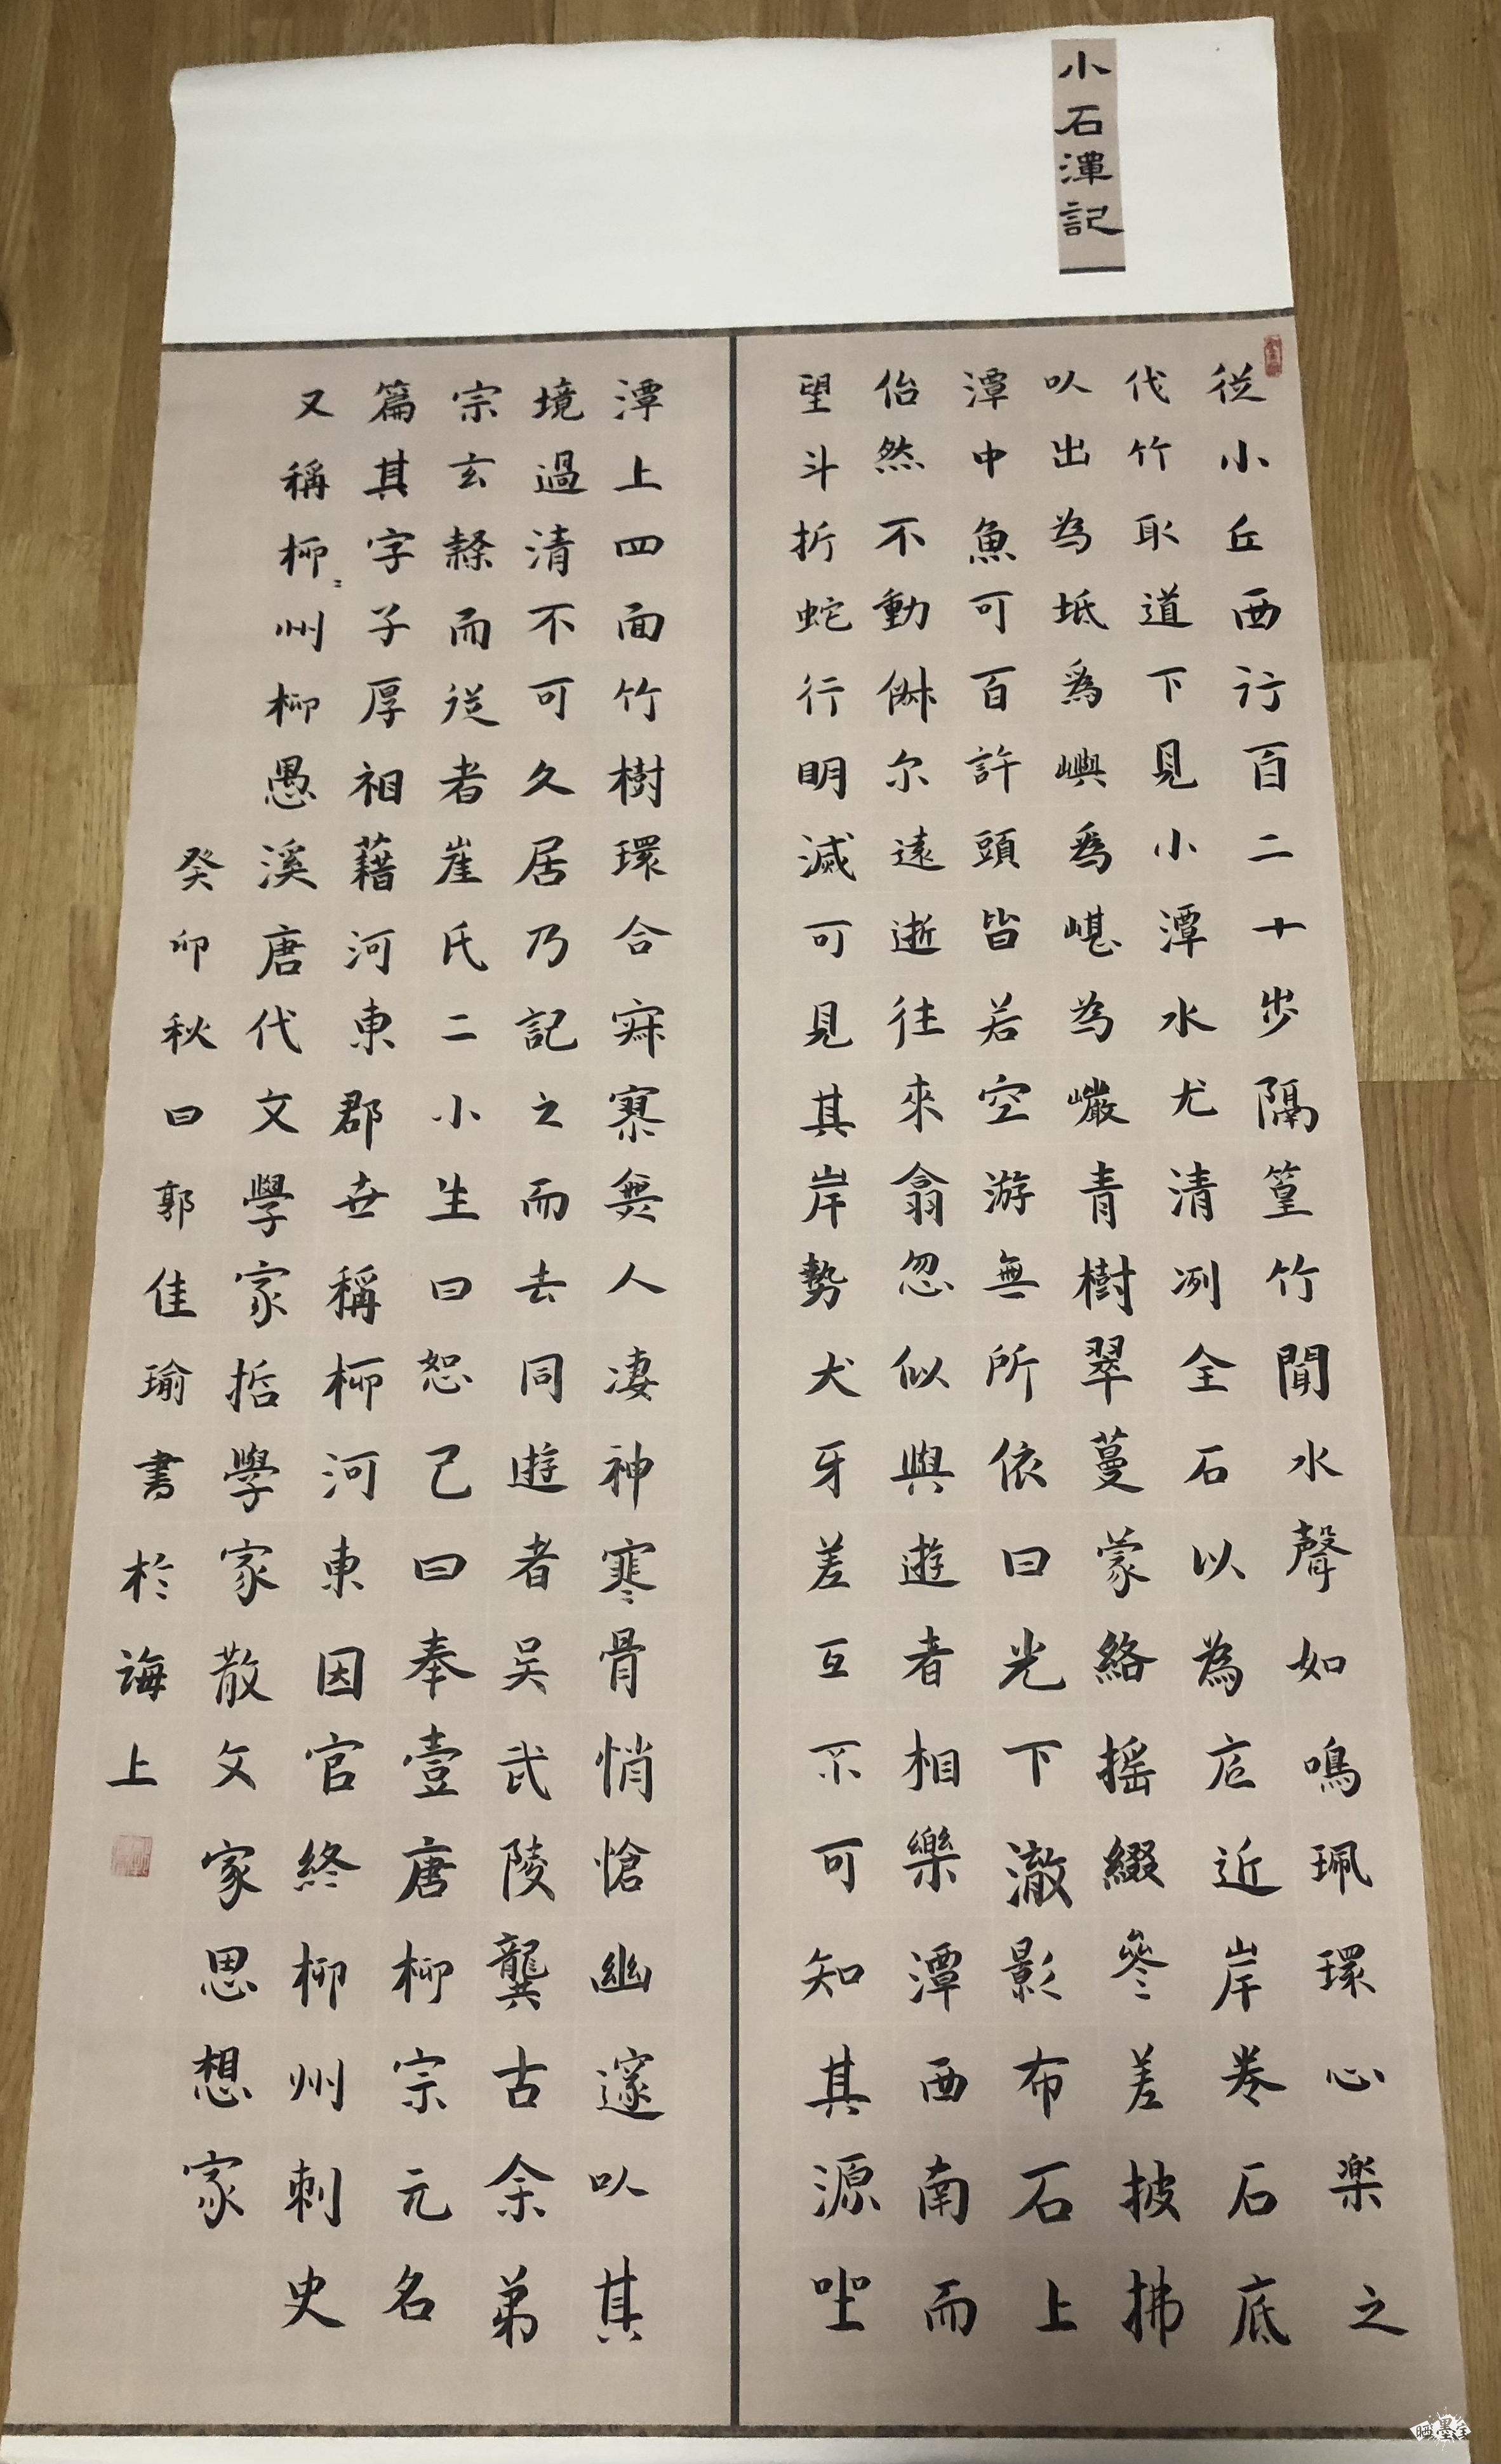 小石潭記
從小丘西行百二十步隔篁竹聞水聲如鳴珮環心楽之
伐竹取道下見小潭水尤清冽全石以為底近岸卷石底
以出為坻爲嶼爲嵁為巖青樹翠蔓蒙絡搖綴參差披拂
潭中魚可百許頭皆若空游無所依日光下澈影布石上
佁然不動俶尔遠逝往來翕忽似與遊者相樂潭西南而
望斗折蛇行明滅可見其岸勢犬牙差互不可知其源坐
潭上四面竹樹環合寂寥無人凄神寒骨悄愴幽邃以其
境過清不可久居乃記之而去同遊者吳武陵龔古余弟
宗玄隸而從者崔氏二小生曰恕己曰奉壹唐柳宗元名
篇其字子厚祖藉河東郡世稱柳河東因官終柳州刺史
又稱柳柳州柳愚溪唐代文學家哲學家散文家思想家
癸卯秋日郭佳瑜書於海上
晒墨宝